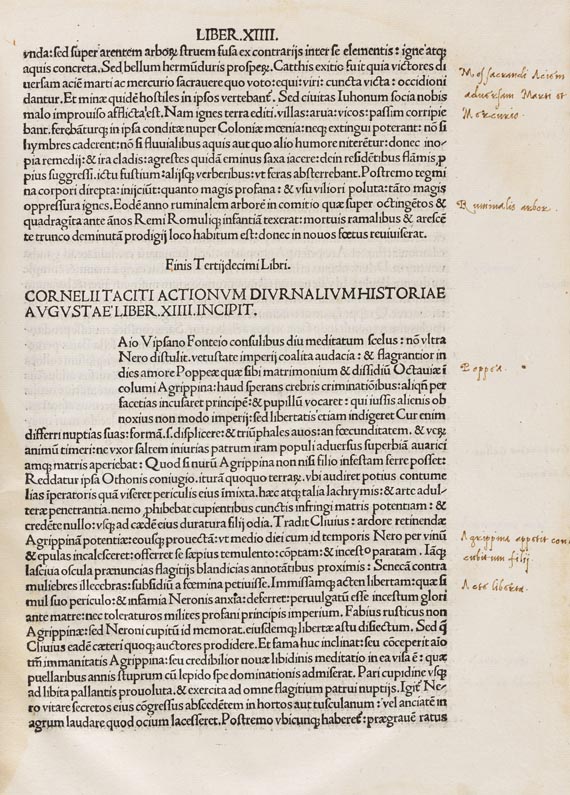 LIBER.XIIII.
vnda: sed super arentem arboꝝ struem fusa ex contrarijs inter se elementis: igne atq;
aquis concreta. Sed bellum hermūduris prospeꝝ. Catthis exitio fuit quia victores di
uersam aciē marti ac mercurio sacrauere quo voto: equi: viri: cuncta victa: occidioni
dantur. Et minæ quidē hostiles in ipsos vertebant̄. Sed ciuitas Iuhonum socia nobis
malo improuiso afflicta est. Nam ignes terra editi. villas: arua: vicos: passim corripie
bant. ferebāturq; in ipsa conditæ nuper Coloniæ mœnia: neq; extingui poterant: nō si
hymbres caderent: nō si fluuialibus aquis aut quo alio humore niterētur: donec ino-
pia remedij: & ira cladis: agrestes quidā eminus saxa iacere: dein residētibus flāmis, p
pius suggressi. ictu fustium: alijsq; verberibus: vt feras absterrebant. Postremo tegmi
na corpori direpta: inijciūt: quanto magis profana: & vsu viliori poluta: tāto magis
oppressura ignes. Eodē anno ruminalem arborē in comitio quæ super octingētos &
quadragīta ante ānos Remi Romuliq; infantiā texerat: mortuis ramalibus & arescē
te trunco deminutā prodigij loco habitum est: donec in nouos fœtus reuiuiserat.
Finis Tertijdecimi Libri.
CORNELII TACITI ACTIONVM DIVRNALIVM HISTORIAE
AVGVSTAE LIBER.XIIII.INCIPIT.
Aio Vipsano Fonteio consulibus diu meditatum scelus: nō vltra
Nero distulit. vetustate imperij coalita audacia: & flagrantior in
dies amore Poppeæ quæ sibi matrimonium & dissidiū Octauiæ ī
columi Agrippina: haud sperans crebris criminatiōibus: aliqn̄ per
facetias incusaret principē: & pupillū vocaret: qui iussis alienis ob
noxius non modo imperij: sed libertatis etiam indigeret Cur enim
differri nuptias suas: formā.s. displicere: & triūphales auos: an fœcunditatem. & veꝝ
animū timeri: ne vxor saltem iniurias patrum iram populi aduersus superbiā auarici
amq; matris aperiebat: Quod si nurū Agrippina non nisi filio infestam ferre posset:
Reddatur ipsa Othonis coniugio. iturā quoquo terraꝝ. vbi audiret potius contume
lias īperatoris quā viseret periculis eius imixta. hæc atq; talia lachrymis: & arte adul-
teræ penetrantia. nemo, phibebat cupientibus cunctis infringi matris potentiam: &
credēte nullo: vsq; ad cædē eius duratura filij odia. Tradit Cluius: ardore retinendæ
Agrippinā potentiæ: eousq; prouectā: vt medio diei cum id temporis Nero per vinū
& epulas incalsceret: offerret se sæpius temulento: cōptam: & incesto paratam. Iāq;
lasciua oscula prænuncias flagitijs blandicias annotātibus proximis: Senecā contra
muliebres illecebras: subsidiū a fœmina petiuisse. Immissamq; acten libertam: quæ si
mul suo periculo: & infamia Neronis anxia: deferret: peruulgatū esse incestum glori
ante matre: nec toleraturos milites profani principis imperium. Fabius rusticus non
Agrippinæ: sed Neroni cupitū id memorat. eiusdemq; libertæ astu disiectum. Sed q̄
Cluius eadē cæteri quoq; auctores prodidere. Et fama huc inclinat: seu cōceperit aīo
tm̄ immanitatis Agrippina: seu credibilior nouæ libidinis meditatio in ea visa ē: quæ
puellaribus annis stuprum cū lepido spe dominationis admiserat. Pari cupidine vsq;
ad libita pallantis prouoluta: & exercita ad omne flagitium patrui nuptijs. Igit̄ Ne-
ro vitare secretos eius cōgressus abscedētem in hortos aut tusculanum: vel anciatē in
agrum laudare quod ocium lacesseret. Postremo vbicunq; haberet̄: prægrauē ratus
Mos sacrandi Aciem
aduersam Marti et
Mercurio.
Ruminalis arbor.
Poppea.
Agrippina appetit con
cubitum filij.
Acte liberta.